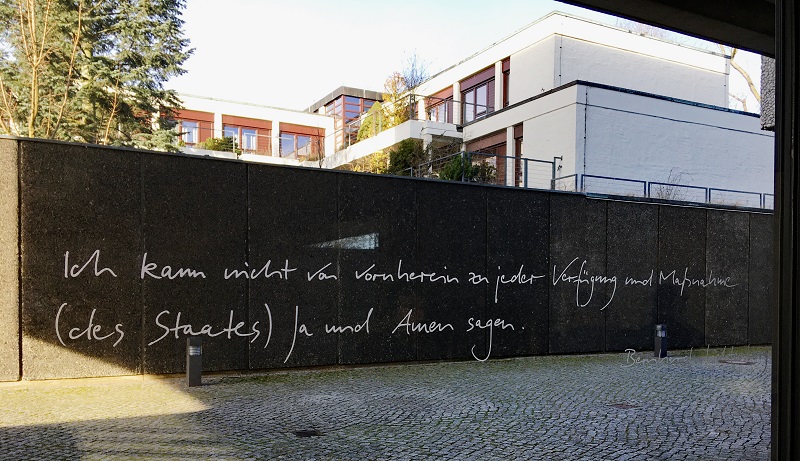 Ich kann nicht von vornherein zu jeder Verfügung und Maßnahme
(des Staates) Ja und Amen sagen.